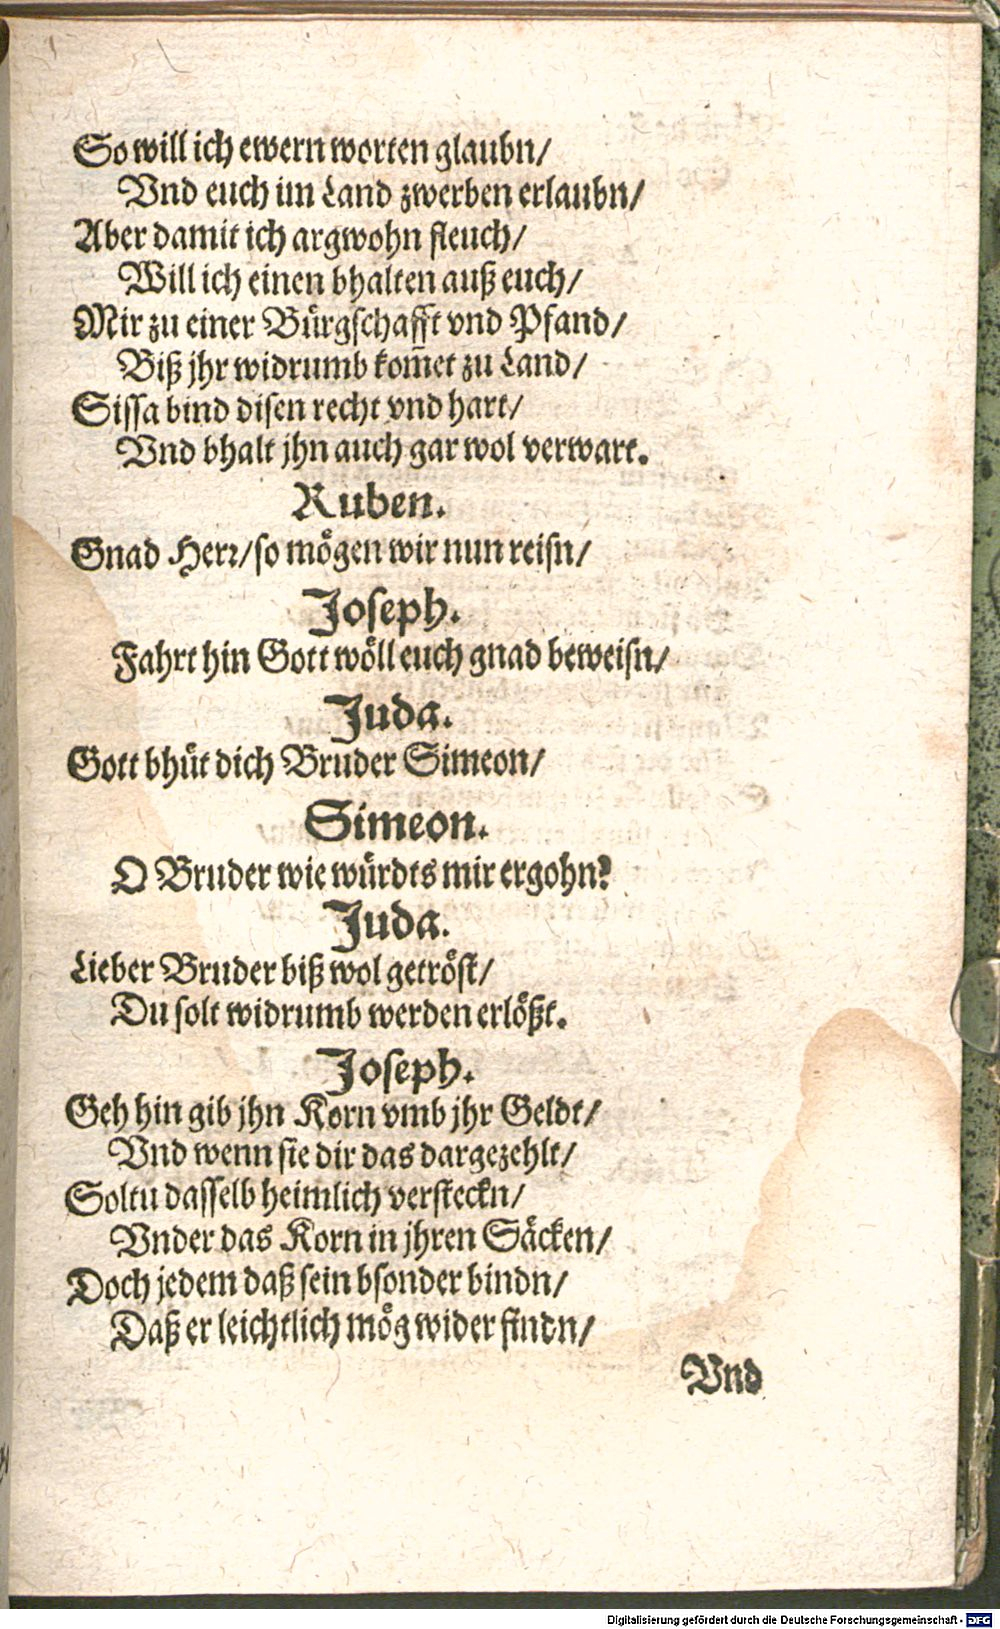 So will ich ewern worten glaubn/
Vnd euch im Land zwerben erlaubn/
Aber damit ich argwohn fleuch/
Will ich einen bhalten auß euch/
Mir zu einer Bürgschafft vnd Pfand/
Biß jhr widrumb kom̃et zu Land/
Sissa bind disen recht vnd hart/
Vnd bhalt jhn auch gar wol verwart.
Ruben.
Gnad Herr/ so mögen wir nun reisn/
Joseph.
Fahrt hin Gott wöll euch gnad beweisn/
Juda.
Gott bhüt dich Bruder Simeon/
Simeon.
O Bruder wie würdts mir ergohn?
Juda.
Lieber Bruder biß wol getröst/
Du solt widrumb werden erlößt.
Joseph.
Geh hin gib jhn Korn vmb jhr Geldt/
Vnd wenn sie dir das dargezehlt/
Soltu dasselb heimlich versteckn/
Vnder das Korn in jhren Säcken/
Doch jedem daß sein bsonder bindn/
Daß er leichtlich mög wider findn/
Vnd
Digitalisierung gefördert durch die Deutsche Forschungsgemeinschaft - DFG